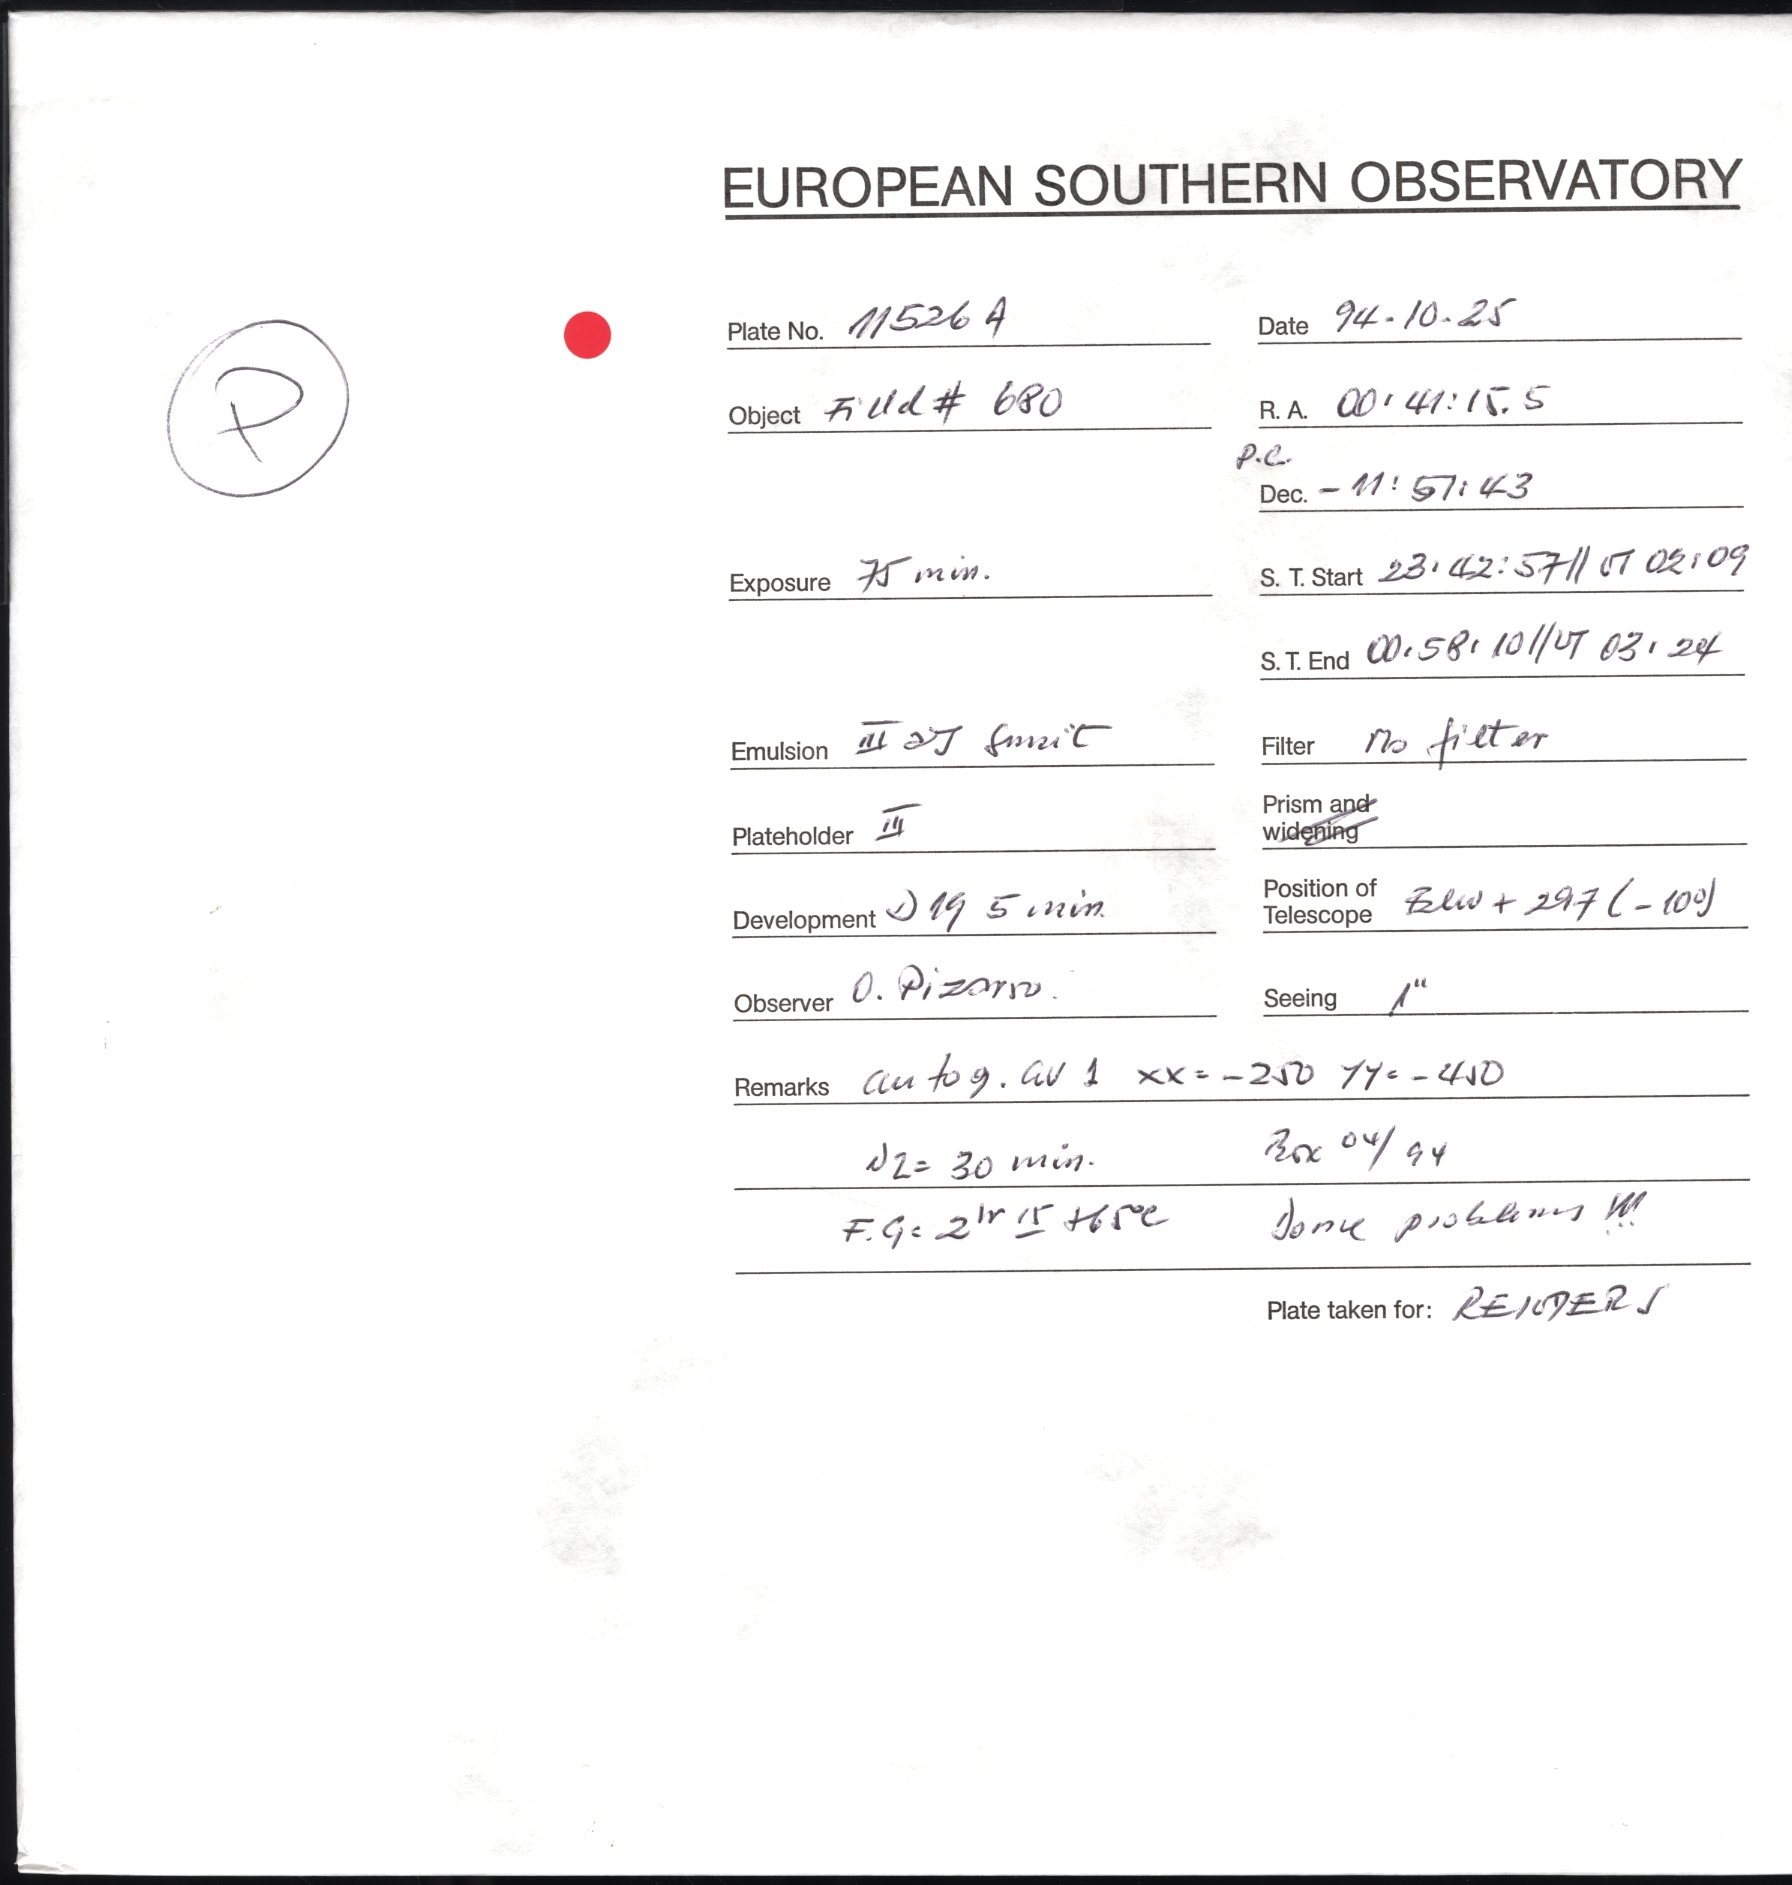 EUROPEAN SOUTHERN OBSERVATORY
P
Plate No. 11526 A
Date 94-10-25
Object Field # 680
R. A. 00:41:15.5
P.C.
Dec. - 11:57:43
Exposure 75 min.
S. T. Start 23:42:57 // UT 02:09
S. T. End 00:58:10 // UT 03:24
Emulsion III aJ
Filter No filter
Plateholder III
Prism and
widening
Development D19 5 min.
Position of
Telescope + 297 (-100)
Observer O. Pizarro.
Seeing 1"
Remarks autog. AV 1 xx = -250 YY = -450
N2 = 30 min. Box 04/94
F.G = 2hr 15 +65°C Dome problems !!!
Plate taken for: REINDERS